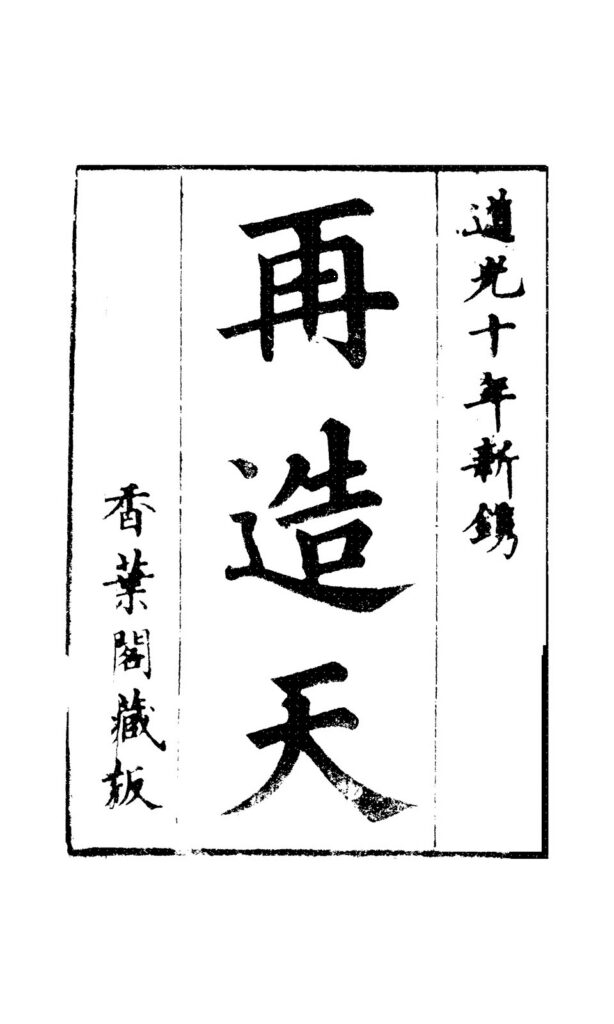 道光十年新鐫
再造天
香葉閣藏板